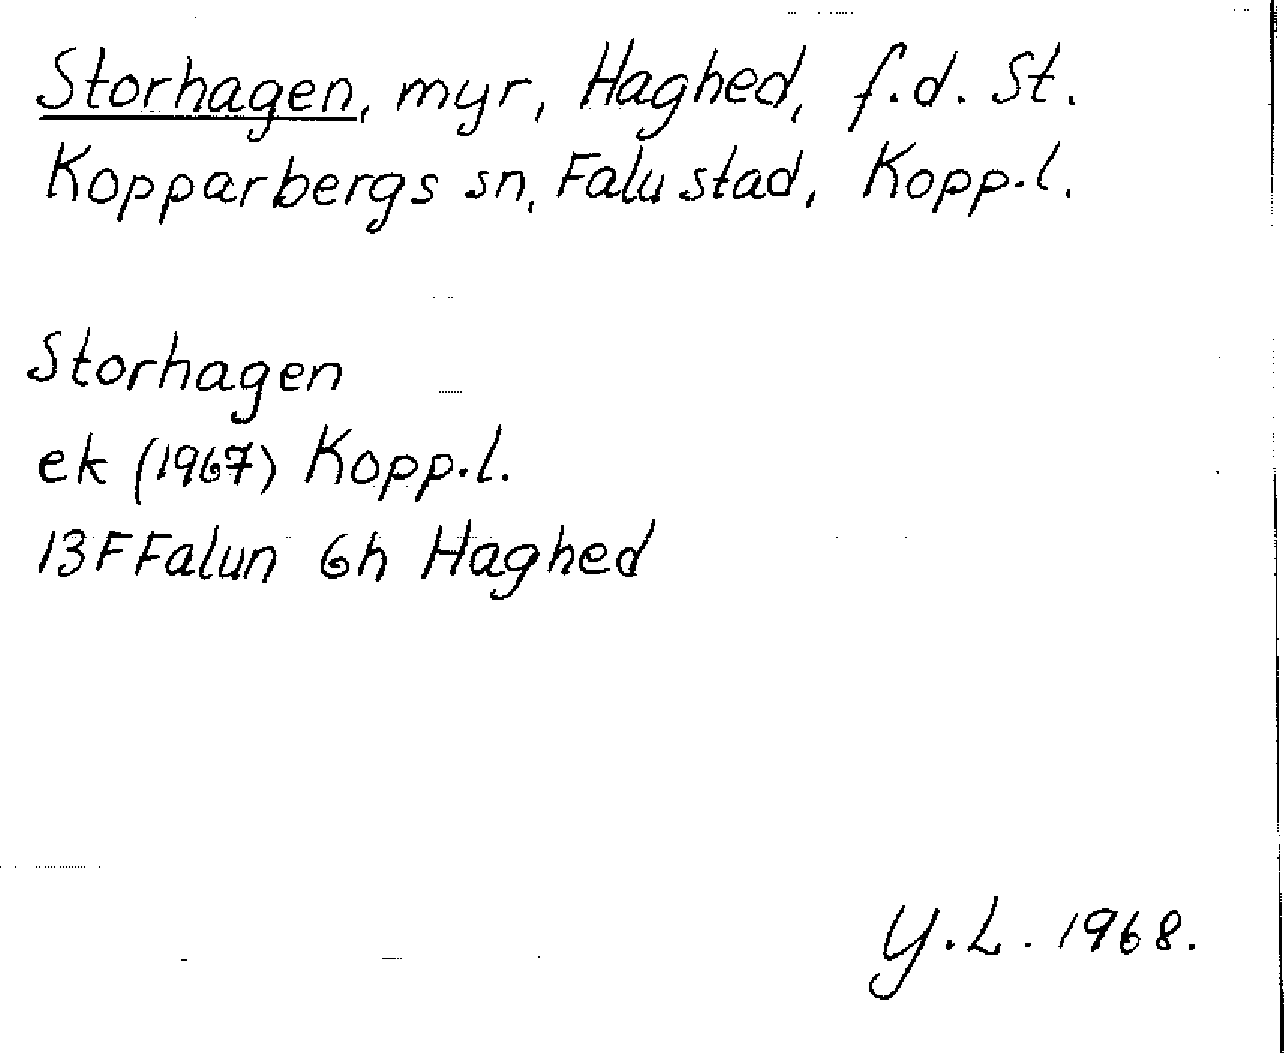 Storhagen, myr, Haghed, f.d. St.
Kopparbergs sn, Falu stad, Kopp.l.
Storhagen
ek (1967) Kopp.l.
13F Falun 6h Haghed
Y.L. 1968.